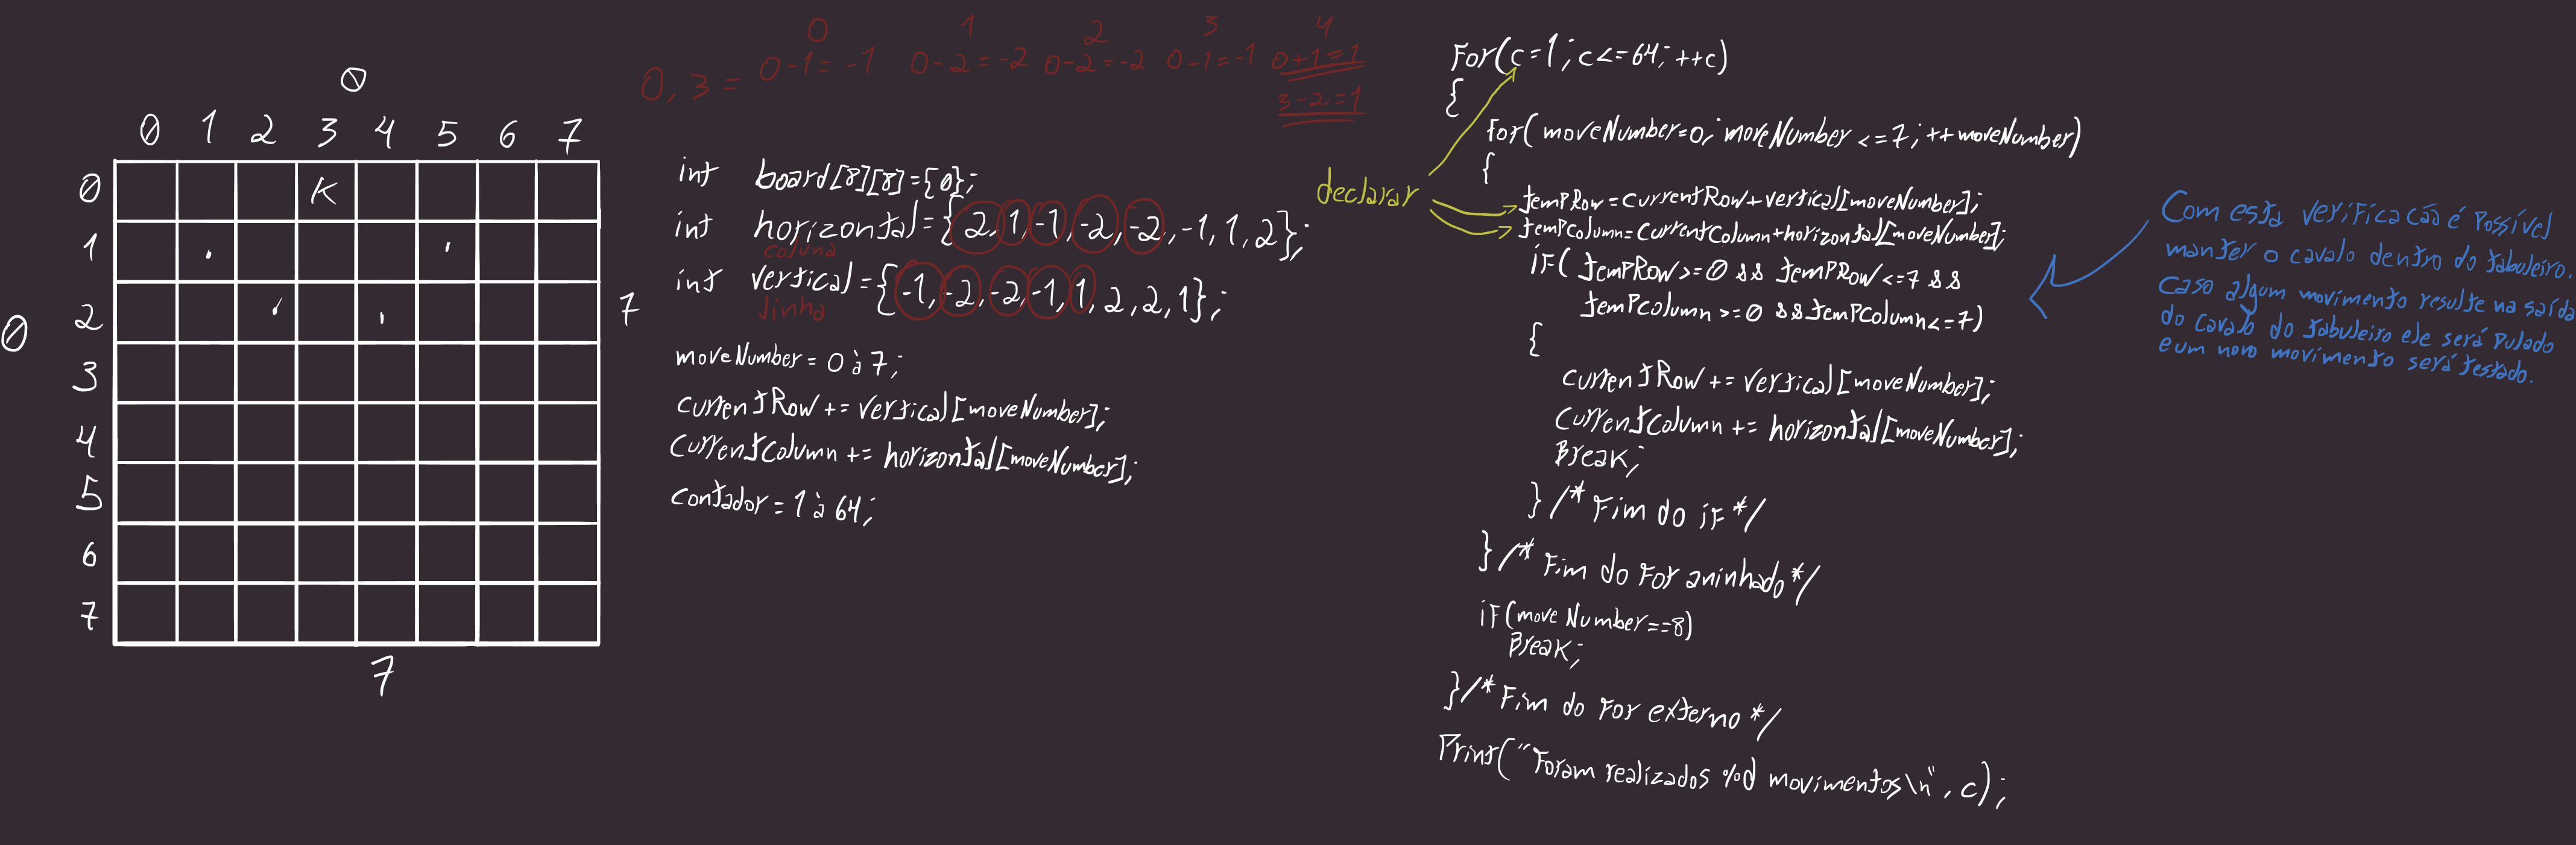 0
0 1 2 3 4 5 6 7
0 K
1
2
3
4
5
6
7
0
7
7
0 1 2 3 4
0,3 = 0-1=-1 0-2=-2 0-2=-2 0-1=-1 0+1=1
3-2=1
int board[8][8]={0};
int horizontal={2,1,-1,-2,-2,-1,1,2};
coluna
int vertical={-1,-2,-2,-1,1,2,2,1};
linha
moveNumber = 0 à 7;
currentRow += vertical[moveNumber];
currentColumn += horizontal[moveNumber];
contador = 1 à 64;
declarar
For(c=1; c<=64; ++c)
{
For(moveNumber=0; moveNumber <=7; ++moveNumber)
{
tempRow=currentRow+vertical[moveNumber];
tempColumn=currentColumn+horizontal[moveNumber];
if( tempRow>=0 && tempRow<=7 &&
tempColumn>=0 && tempColumn<=7)
{
currentRow += vertical[moveNumber];
currentColumn += horizontal[moveNumber];
Break;
} /* Fim do if */
} /* Fim do For aninhado */
if(moveNumber==8)
Break;
} /* Fim do For externo */
Print("Foram realizados %d movimentos\n", c);
Com esta verificacão é possível
manter o cavalo dentro do tabuleiro.
Caso algum movimento resulte na saída
do cavalo do tabuleiro ele será pulado
e um novo movimento será testado.